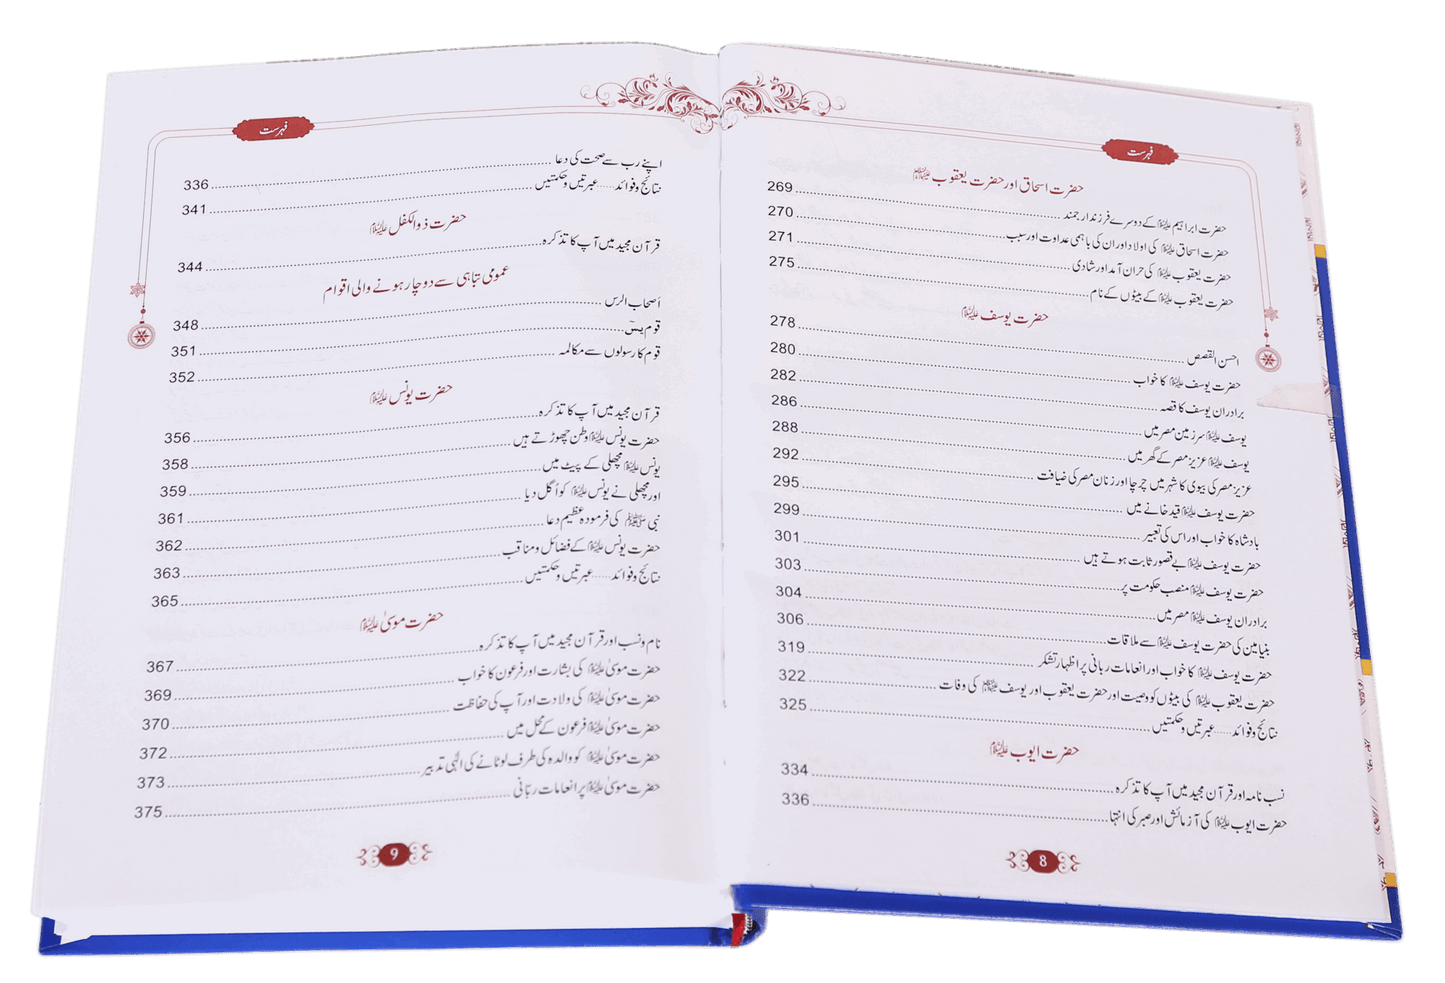 فہرست
حضرت اسحاق اور حضرت یعقوب علیہما السلام
حضرت ابراہیم علیہ السلام کے دوسرے فرزندار جمند 269
حضرت اسحاق علیہ السلام کی اولاد اور ان کی باہمی عداوت اور سبب 270
حضرت یعقوب علیہ السلام کی حران آمد اور شادی 271
حضرت یعقوب علیہ السلام کے بیٹوں کے نام 275
حضرت یوسف علیہ السلام
احسن القصص 278
حضرت یوسف علیہ السلام کا خواب 280
برادران یوسف کا قصہ 282
یوسف علیہ السلام سرزمین مصر میں 286
یوسف علیہ السلام عزیز مصر کے گھر میں 288
عزیز مصر کی بیوی کا شہر میں چرچا اور زنان مصر کی ضیافت 292
حضرت یوسف علیہ السلام قید خانے میں 295
بادشاہ کا خواب اور اس کی تعبیر 299
حضرت یوسف علیہ السلام بے قصور ثابت ہوتے ہیں 301
حضرت یوسف علیہ السلام منصب حکومت پر 303
برادران یوسف علیہ السلام مصر میں 304
بنیامین کی حضرت یوسف علیہ السلام سے ملاقات 306
حضرت یوسف علیہ السلام کا خواب اور انعامات ربانی پر اظہار تشکر 319
حضرت یعقوب علیہ السلام کی بیٹوں کو وصیت اور حضرت یعقوب اور یوسف علیہما السلام کی وفات 322
نتائج و فوائد ...... عبرتیں و حکمتیں 325
حضرت ایوب علیہ السلام
نسب نامہ اور قرآن مجید میں آپ کا تذکرہ 334
حضرت ایوب علیہ السلام کی آزمائش اور صبر کی انتہا 336
8
فہرست
اپنے رب سے صحت کی دعا 336
نتائج و فوائد ...... عبرتیں و حکمتیں 341
حضرت ذوالکفل علیہ السلام
قرآن مجید میں آپ کا تذکرہ 344
عمومی تباہی سے دوچار ہونے والی اقوام
اصحاب الرس 348
قوم یٰسٓ 351
قوم کا رسولوں سے مکالمہ 352
حضرت یونس علیہ السلام
قرآن مجید میں آپ کا تذکرہ 356
حضرت یونس علیہ السلام وطن چھوڑتے ہیں 358
یونس علیہ السلام مچھلی کے پیٹ میں 359
اور مچھلی نے یونس علیہ السلام کو اُگل دیا 361
نبی ﷺ کی فرمودہ عظیم دعا 362
حضرت یونس علیہ السلام کے فضائل و مناقب 363
نتائج و فوائد ...... عبرتیں و حکمتیں 365
حضرت موسیٰ علیہ السلام
نام و نسب اور قرآن مجید میں آپ کا تذکرہ 367
حضرت موسیٰ علیہ السلام کی بشارت اور فرعون کا خواب 369
حضرت موسیٰ علیہ السلام کی ولادت اور آپ کی حفاظت 370
حضرت موسیٰ علیہ السلام فرعون کے محل میں 372
حضرت موسیٰ علیہ السلام کو والدہ کی طرف لوٹانے کی الٰہی تدبیر 373
حضرت موسیٰ علیہ السلام پر انعامات ربّانی 375
9